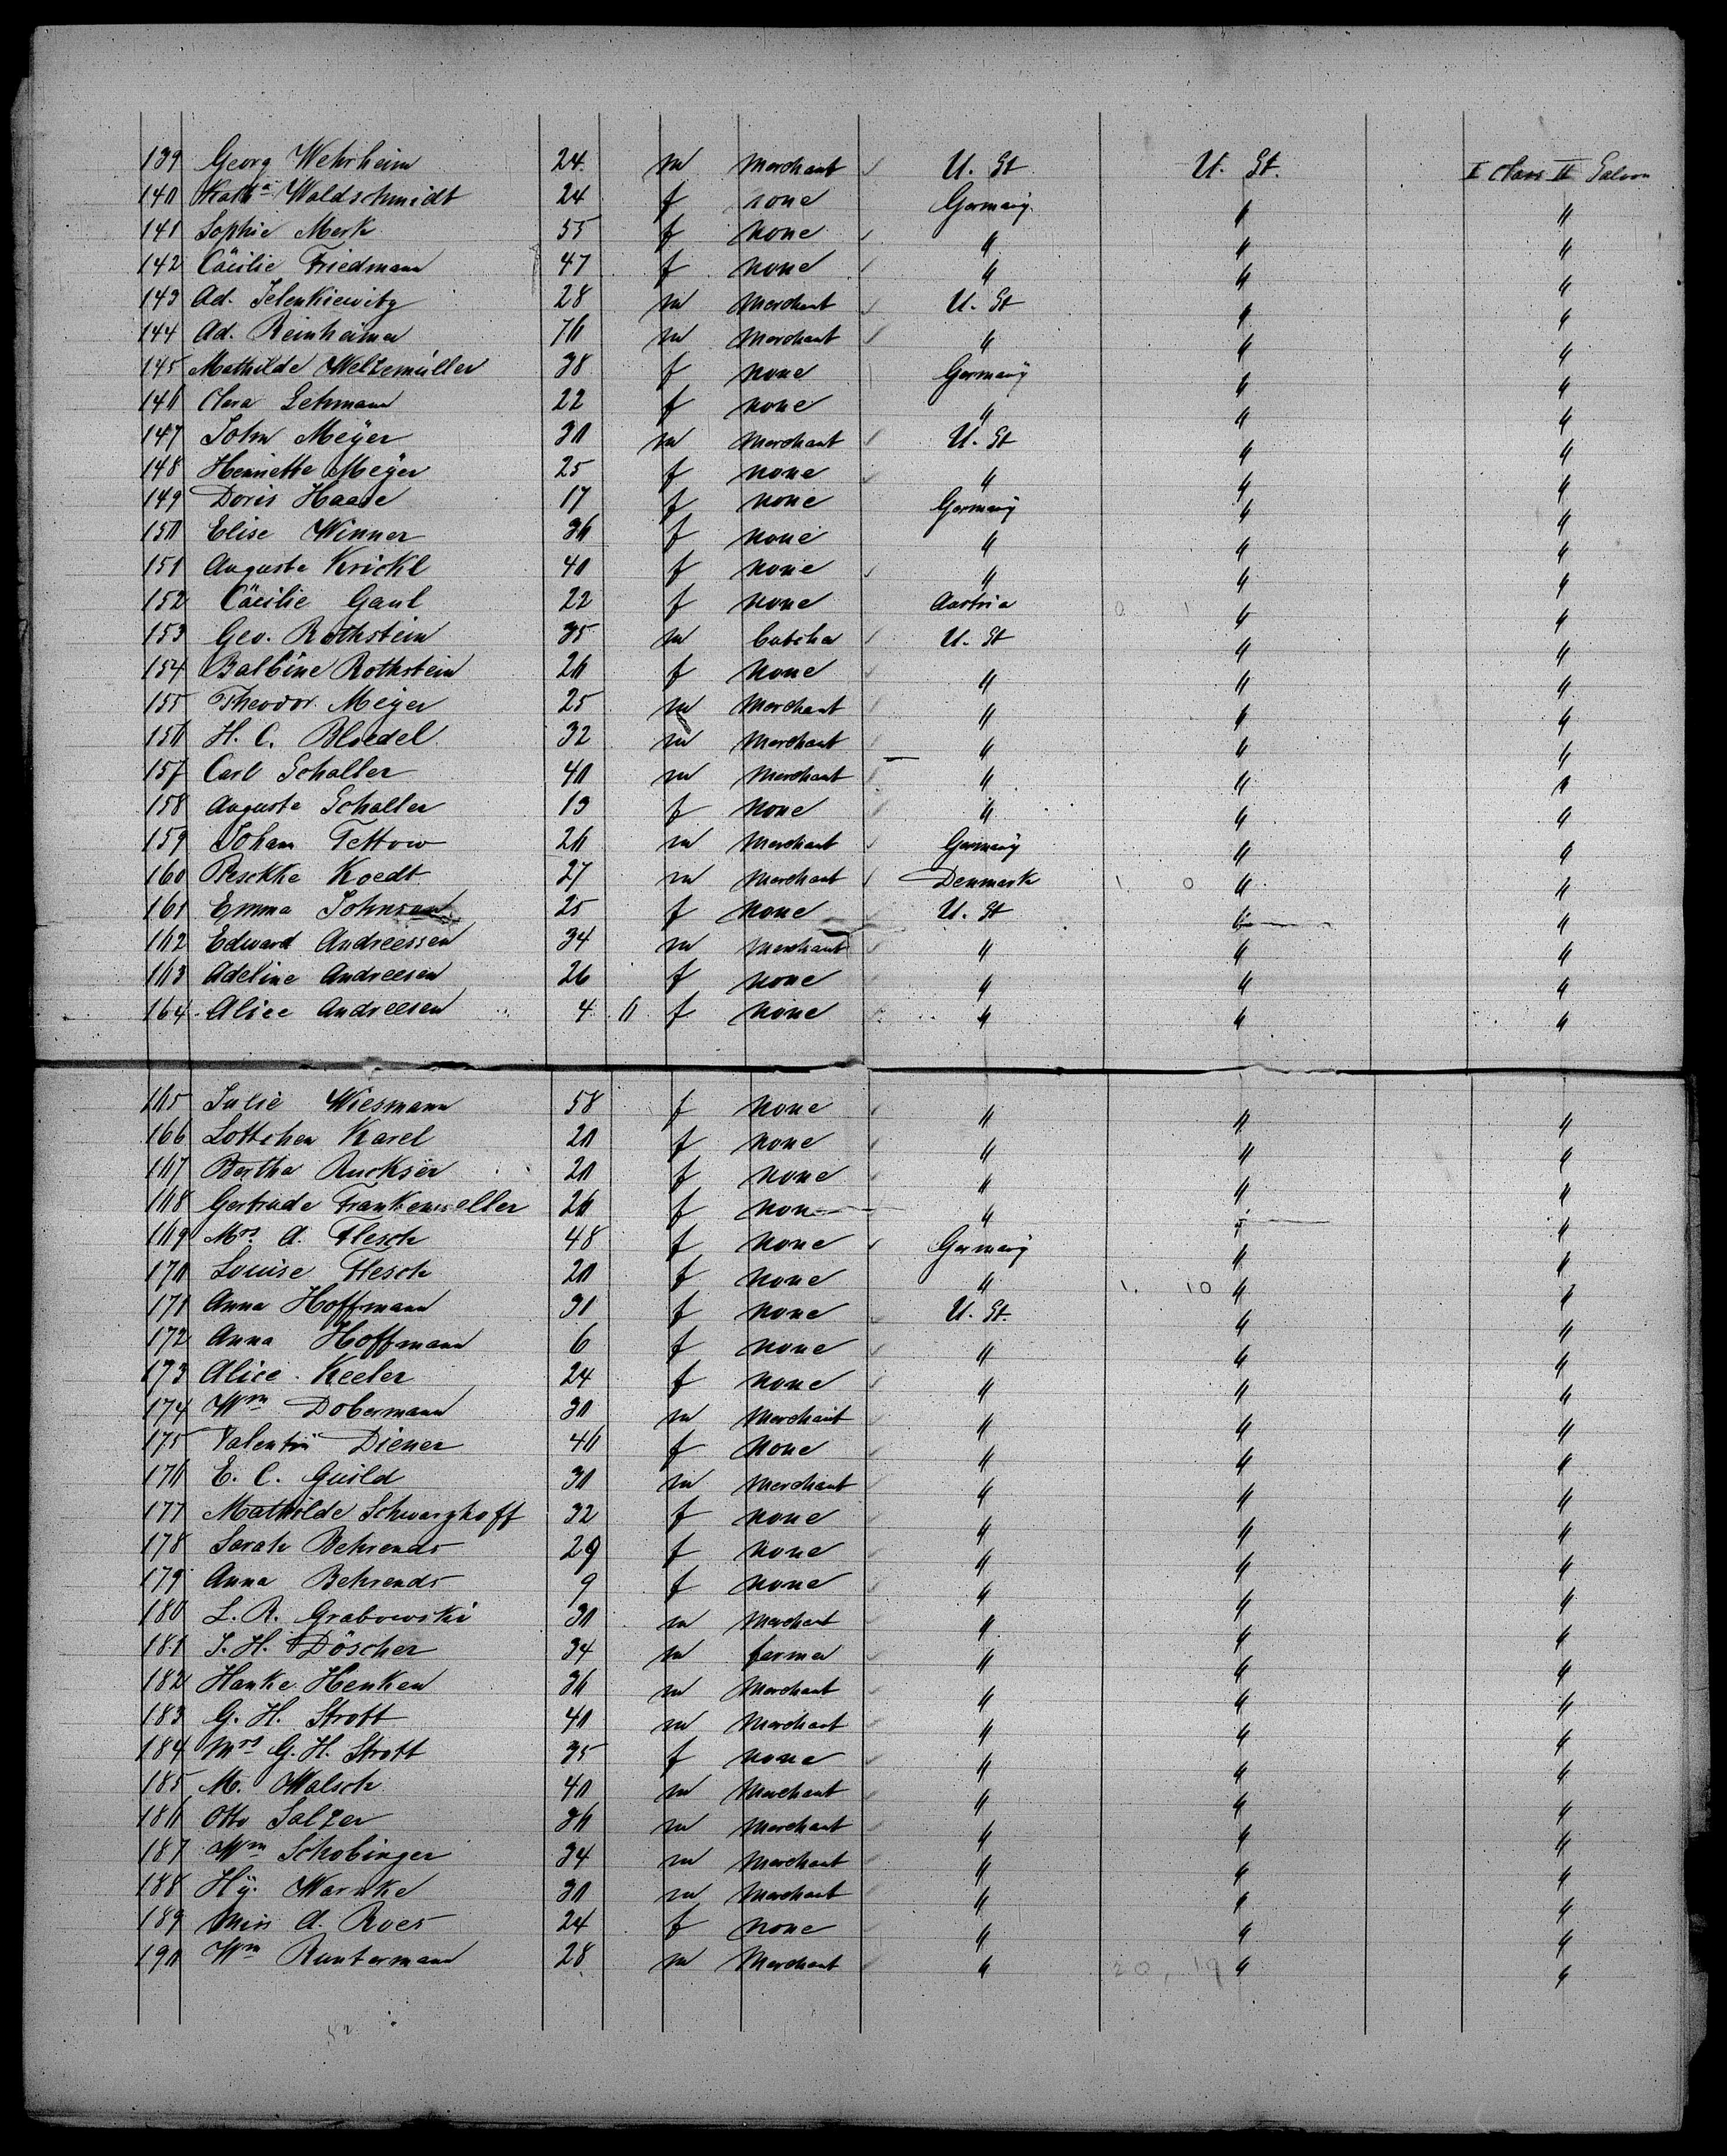 139 Georg Wehrheim 24 m Merchant U. St U. St. I Class II Saloon
140 Kath^a Waldschmidt 24 f none Germany " "
141 Sophie Merk 55 f none " " "
142 Cäcilie Friedmann 47 f none " " "
143 Ad. Jelenkiewitz 28 m Merchant U. St " "
144 Ad. Reinheimer 70 m Merchant " " "
145 Mathilde Welzemüller 38 f none Germany " "
146 Clara Lehmann 22 f none " " "
147 John Meÿer 30 m Merchant U. St " "
148 Henriette Meÿer 25 f none " " "
149 Doris Haase 17 f none Germany " "
150 Elise Winner 36 f none " " "
151 Auguste Krickl 40 f none " " "
152 Cäcilie Gaul 22 f none Austria " "
153 Geo. Rothstein 35 m butcher U. St " "
154 Balbine Rothstein 26 f none " " "
155 Theodor Meyer 25 m Merchant " " "
156 H. C. Bloedel 32 m Merchant " " "
157 Carl Schaller 40 m Merchant " " "
158 Auguste Schaller 13 f none " " "
159 Johann Tettow 26 m Merchant Germany " "
160 Koedt 27 m Merchant Denmark " "
161 Emma Johnson 25 f none U. St " "
162 Edward Andreessen 34 m Merchant " " "
163 Adeline Andreesen 26 f none " " "
164 Alice Andreesen 4 f none " " "
165 Julie Wiesmann 58 f none " " "
166 Lottchen Karel 20 f none " " "
167 Bertha Ruckser 20 f none " " "
168 Gertrude Frankenweller 26 f none " " "
169 Mrs A. Flesch 48 f none Germany " "
170 Louise Flesch 20 f none " 1. 10 " "
171 Anna Hoffmann 31 f none U. St. " "
172 Anna Hoffmann 6 f none " " "
173 Alice Keeler 24 f none " " "
174 Wm Dobermann 30 m Merchant " " "
175 Valentin Diener 46 f none " " "
176 E. C. Guild 30 m Merchant " " "
177 Mathilde Schwarzhoff 32 f none " " "
178 Sarah Behrends 29 f none " " "
179 Anna Behrends 9 f none " " "
180 L. R. Grabowski 30 m Merchant " " "
181 J. H. Döscher 34 m farmer " " "
182 Hanke Henken 36 m Merchant " " "
183 G. H. Strott 40 m Merchant " " "
184 Mrs G. H. Strott 35 f none " " "
185 M. Walsch 40 m Merchant " " "
186 Otto Salzer 36 m Merchant " " "
187 Wm Schobinger 34 m Merchant " " "
188 Hÿ. Warnke 30 m Merchant " " "
189 Miss A. Roes 24 f none " " "
190 Wm Runtermann 28 m Merchant " 20, 19 " "